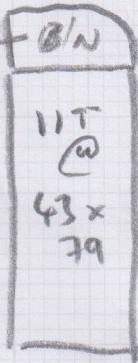 B/N
11T
@
43x
79